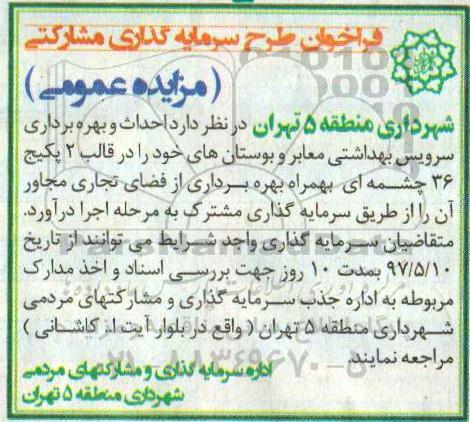 فراخوان طرح سرمایه گذاری مشارکتی
( مزایده عمومی )
شهرداری منطقه ۵ تهران در نظر دارد احداث و بهره برداری
سرویس بهداشتی معابر و بوستان های خود را در قالب ۲ پکیج
۳۶ چشمه ای بهمراه بهره برداری از فضای تجاری مجاور
آن را از طریق سرمایه گذاری مشترک به مرحله اجرا درآورد.
متقاضیان سرمایه گذاری واجد شرایط می توانند از تاریخ
۹۷/۵/۱۰ بمدت ۱۰ روز جهت بررسی اسناد و اخذ مدارک
مربوطه به اداره جذب سرمایه گذاری و مشارکتهای مردمی
شهرداری منطقه ۵ تهران ( واقع در بلوار آیت ا.. کاشانی )
مراجعه نمایند.
اداره سرمایه گذاری و مشارکتهای مردمی
شهرداری منطقه ۵ تهران